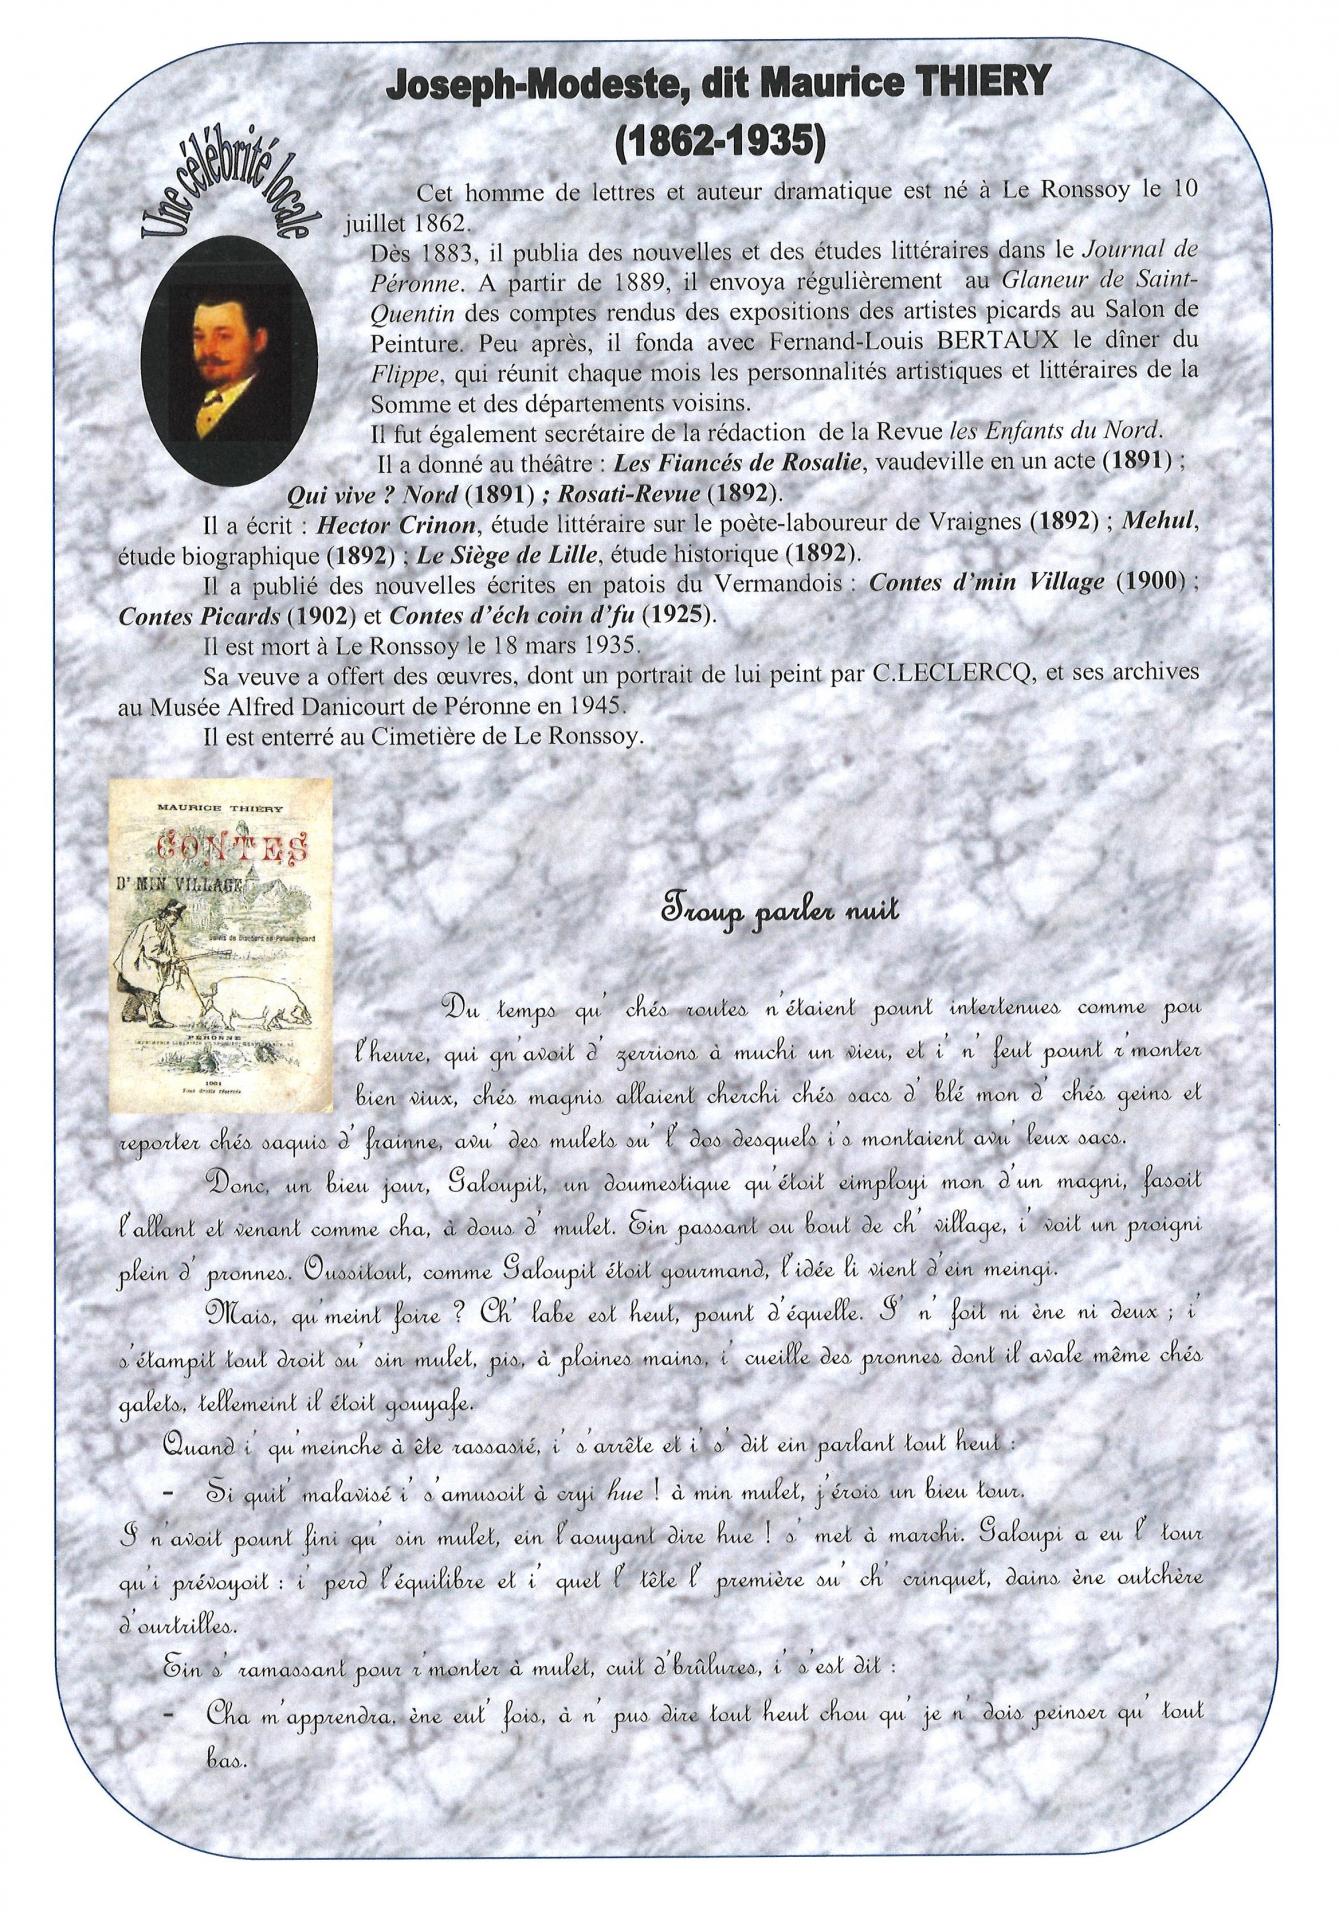 Joseph-Modeste, dit Maurice THIERY
(1862-1935)
Une célébrité locale
Cet homme de lettres et auteur dramatique est né à Le Ronssoy le 10
juillet 1862.
Dès 1883, il publia des nouvelles et des études littéraires dans le Journal de
Péronne. A partir de 1889, il envoya régulièrement au Glaneur de Saint-
Quentin des comptes rendus des expositions des artistes picards au Salon de
Peinture. Peu après, il fonda avec Fernand-Louis BERTAUX le dîner du
Flippe, qui réunit chaque mois les personnalités artistiques et littéraires de la
Somme et des départements voisins.
Il fut également secrétaire de la rédaction de la Revue les Enfants du Nord.
Il a donné au théâtre : Les Fiancés de Rosalie, vaudeville en un acte (1891) ;
Qui vive ? Nord (1891) ; Rosati-Revue (1892).
Il a écrit : Hector Crinon, étude littéraire sur le poète-laboureur de Vraignes (1892) ; Mehul,
étude biographique (1892) ; Le Siège de Lille, étude historique (1892).
Il a publié des nouvelles écrites en patois du Vermandois : Contes d'min Village (1900) ;
Contes Picards (1902) et Contes d'éch coin d'fu (1925).
Il est mort à Le Ronssoy le 18 mars 1935.
Sa veuve a offert des œuvres, dont un portrait de lui peint par C.LECLERCQ, et ses archives
au Musée Alfred Danicourt de Péronne en 1945.
Il est enterré au Cimetière de Le Ronssoy.
MAURICE THIERY
CONTES
D' MIN VILLAGE
PÉRONNE
1901
Tous droits réservés
Troup parler nuit
Du temps qu' chés routes n'étaient pount intertenues comme pou
l'heure, qui gn'avoit d' zerrions à muchi un vieu, et i' n' feut pount r'monter
bien viux, chés magnis allaient cherchi chés sacs d' blé mon d' chés geins et
reporter chés saquis d' frainne, avu' des mulets su' l' dos desquels i's montaient avu' leux sacs.
Donc, un bieu jour, Galoupit, un doumestique qu'étoit eimployi mon d'un magni, fasoit
l'allant et venant comme cha, à dous d' mulet. Ein passant ou bout de ch' village, i' voit un proigni
plein d' pronnes. Oussitout, comme Galoupit étoit gourmand, l'idée li vient d'ein meingi.
Mais, qu'meint foire ? Ch' labe est heut, pount d'équelle. I' n' foit ni ène ni deux ; i'
s'étampit tout droit su' sin mulet, pis, à ploines mains, i' cueille des pronnes dont il avale même chés
galets, tellemeint il étoit gouyafe.
Quand i' qu'meinche à ête rassasié, i' s'arrête et i' s' dit ein parlant tout heut :
- Si quit' malavisé i' s'amusoit à cryi hue ! à min mulet, j'érois un bieu tour.
I n'avoit pount fini qu' sin mulet, ein l'aouyant dire hue ! s' met à marchi. Galoupi a eu l' tour
qu'i prévoyoit : i' perd l'équilibre et i' quet l' tête l' première su' ch' crinquet, dains ène outchère
d'ourtrilles.
Ein s' ramassant pour r'monter à mulet, cuit d'brûlures, i' s'est dit :
- Cha m'apprendra, ène eut' fois, à n' pus dire tout heut chou qu' je n' dois peinser qu' tout
bas.